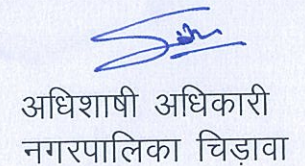 अधिशाषी अधिकारी
नगरपालिका चिड़ावा